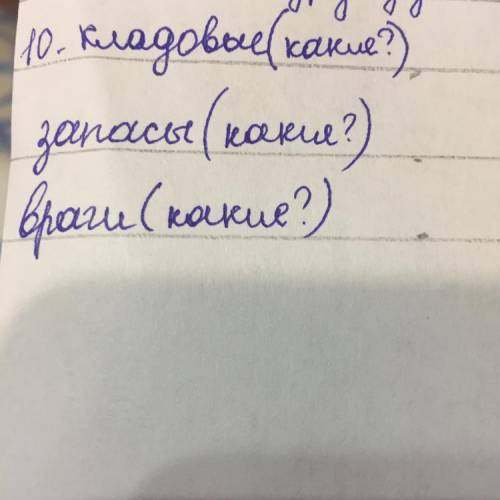 10. кладовые (какие?)
запасы (какие?)
враги (какие?)